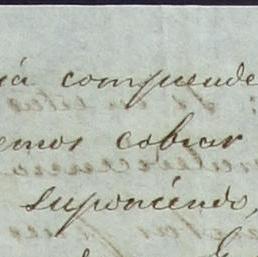 iá comprende
emos cobrar
suponiendo,